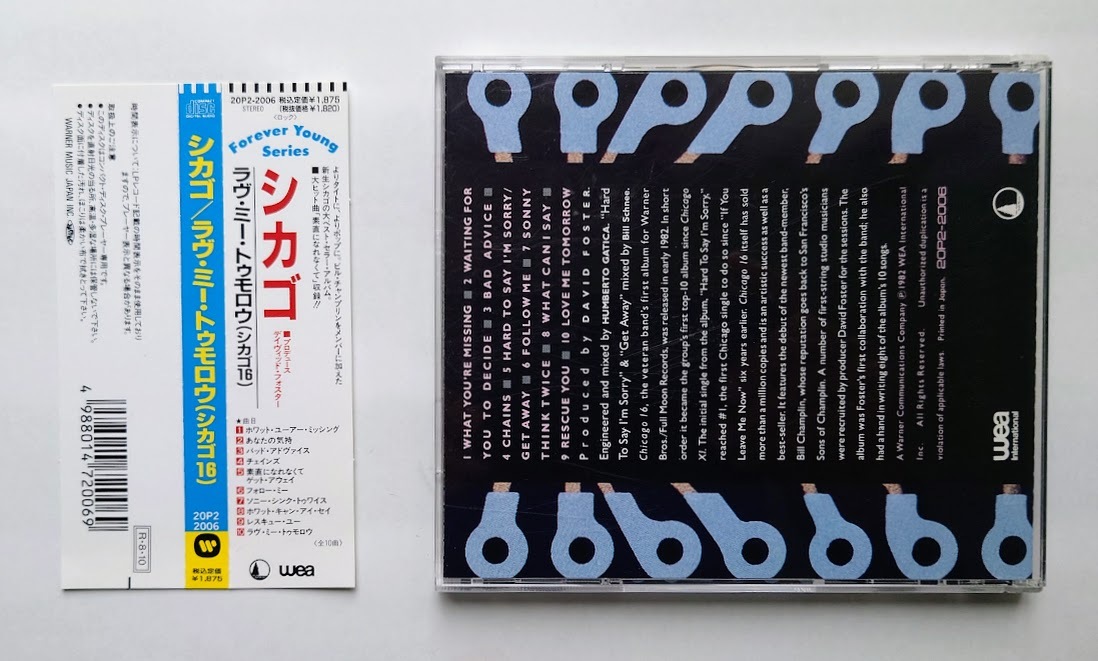 20P2-2006 税込定価¥1,875
STEREO (税抜価格¥1,820)
〈ロック〉
Forever Young
Series
よりタイトに、よりポップに。ビル・チャンプリンをメンバーに迎えた
新生シカゴの大ベスト・セラー・アルバム。
■大ヒット曲「素直になれなくて」収録!!
シカゴ
ラヴ・ミー・トゥモロウ(シカゴ16)
■プロデュース
デイヴィッド・フォスター
★曲目
1 ホワット・ユーアー・ミッシング
2 あなたの気持
3 バッド・アドヴァイス
4 チェインズ
5 素直になれなくて
ゲット・アウェイ
6 フォロー・ミー
7 ソニー・シンク・トゥワイス
8 ホワット・キャン・アイ・セイ
9 レスキュー・ユー
10 ラヴ・ミー・トゥモロウ
〈全10曲〉
wea
COMPACT
disc
DIGITAL AUDIO
シカゴ/ラヴ・ミー・トゥモロウ(シカゴ16)
20P2
2006
税込定価
¥1,875
時間表示について:LPレコード記載の時間表示をそのまま使用しており
ますので、プレーヤー表示と異なる場合があります。
取扱上のご注意
●このディスクはコンパクト・ディスク・プレーヤー専用です。
●ディスクを直射日光の当る所、高温・多湿な場所には保管しないで下さい。
●ディスク面に付着した汚れ、ほこりは柔かい布で拭きとって下さい。
WARNER MUSIC JAPAN INC.
4 988014 720069
R-8・10
1 WHAT YOU'RE MISSING ■ 2 WAITING FOR
YOU TO DECIDE ■ 3 BAD ADVICE ■
4 CHAINS ■ 5 HARD TO SAY I'M SORRY/
GET AWAY ■ 6 FOLLOW ME ■ 7 SONNY
THINK TWICE ■ 8 WHAT CAN I SAY ■
9 RESCUE YOU ■ 10 LOVE ME TOMORROW
Produced by DAVID FOSTER.
Engineered and mixed by HUMBERTO GATICA. "Hard
To Say I'm Sorry" & "Get Away" mixed by Bill Schnee.
Chicago 16, the veteran band's first album for Warner
Bros./Full Moon Records, was released in early 1982. In short
order it became the group's first top-10 album since Chicago
XI. The initial single from the album, "Hard To Say I'm Sorry,"
reached #1, the first Chicago single to do so since "If You
Leave Me Now" six years earlier. Chicago 16 itself has sold
more than a million copies and is an artistic success as well as a
best-seller. It features the debut of the newest band-member,
Bill Champlin, whose reputation goes back to San Francisco's
Sons of Champlin. A number of first-string studio musicians
were recruited by producer David Foster for the sessions. The
album was Foster's first collaboration with the band; he also
had a hand in writing eight of the album's 10 songs.
A Warner Communications Company ℗ 1982 WEA International
Inc. All Rights Reserved. Unauthorized duplication is a
violation of applicable laws. Printed in Japan. 20P2-2006
wea
International